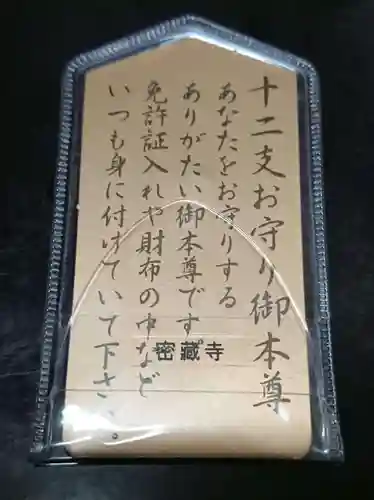 十二支お守り御本尊
あなたをお守りする
ありがたい御本尊です。
免許証入れや財布の中など
いつも身に付けていて下さい。
密藏寺